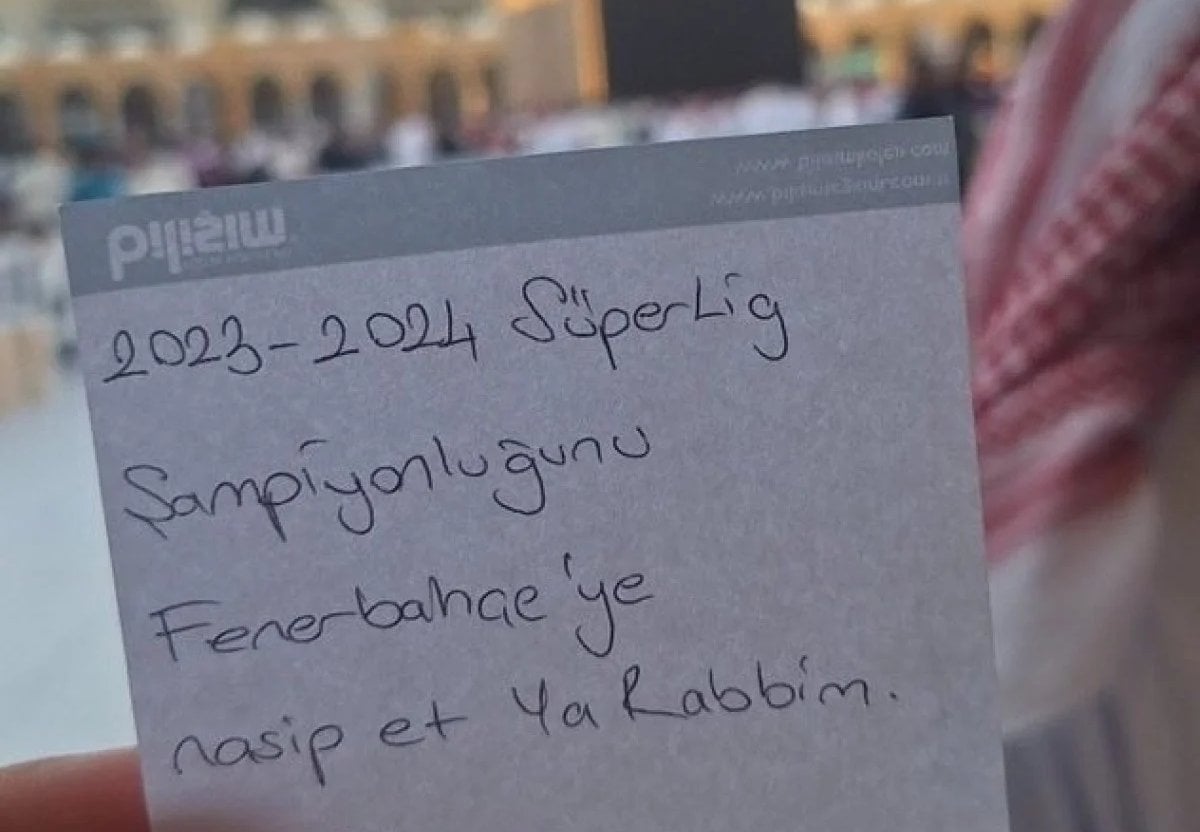 2023-2024 SüperLig
Şampiyonluğunu
Fenerbahçe'ye
nasip et Ya Rabbim.